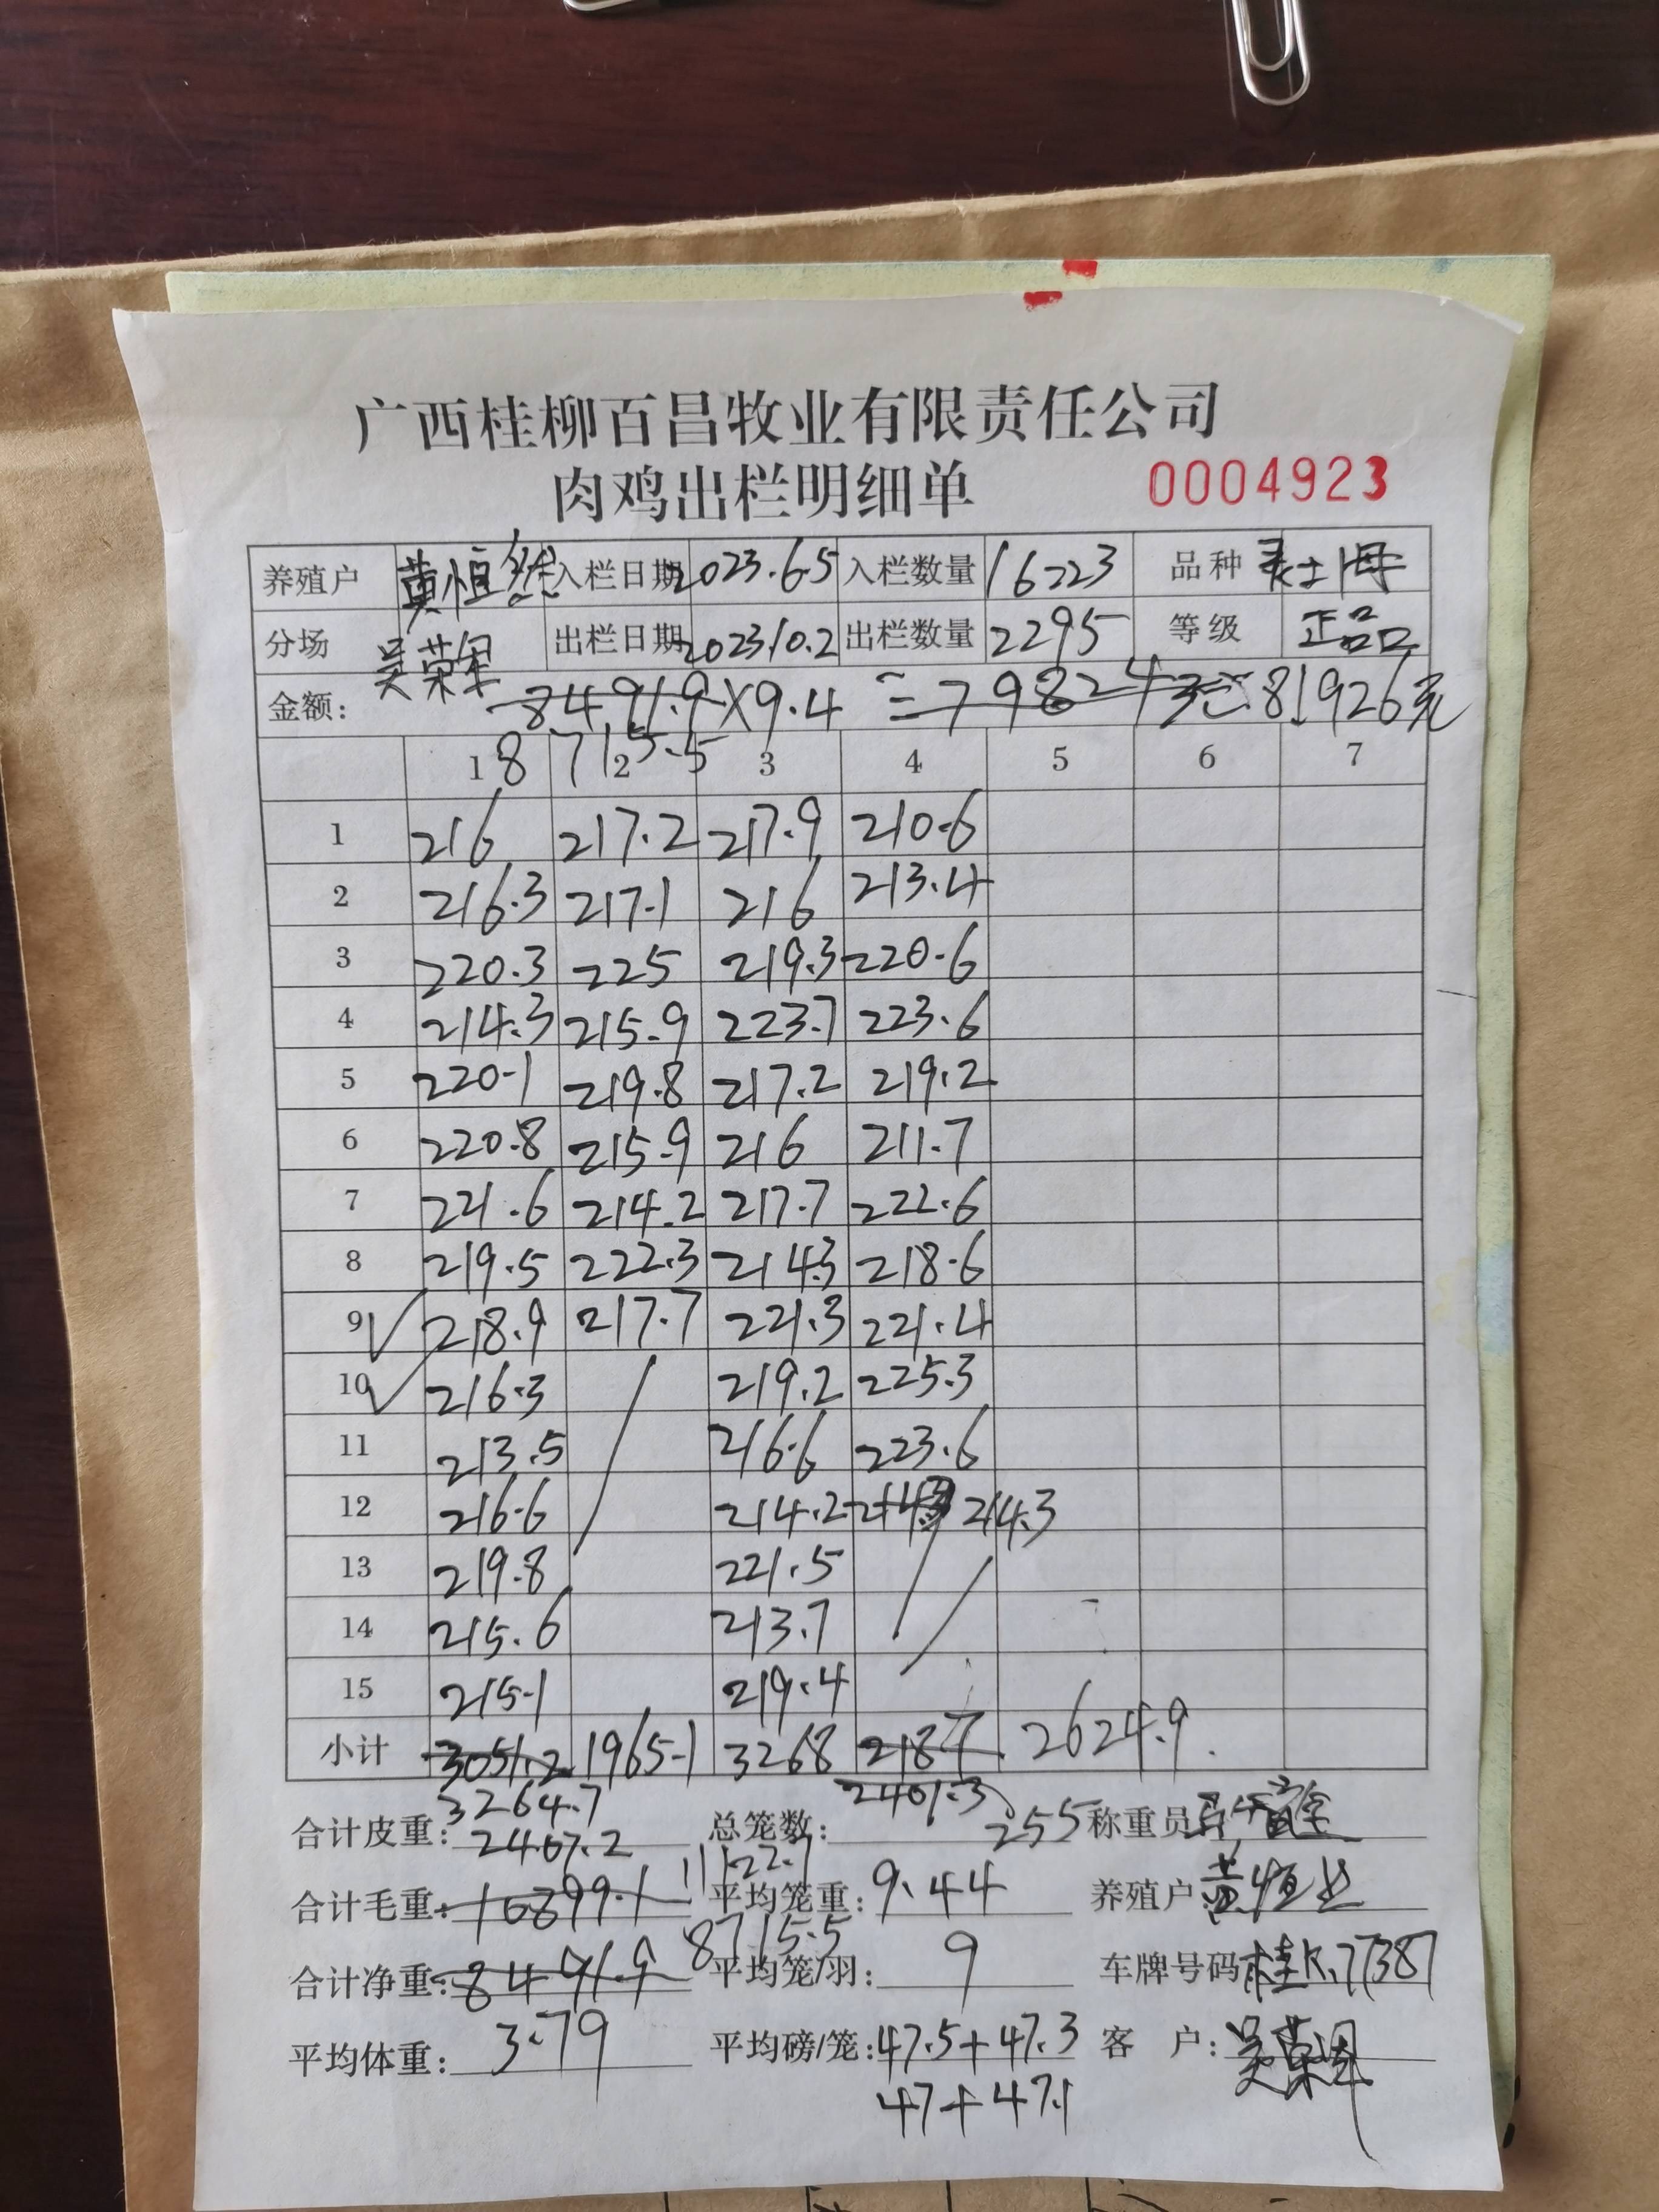 广西桂柳百昌牧业有限责任公司
肉鸡出栏明细单 0004923
养殖户 入栏日期 2023.6.5 入栏数量 16223 品种
分场 吴荣 出栏日期 2023.10.2 出栏数量 2295 等级 正品
金额: 8491.9×9.4 = 79824元 81926元
8715.5
1 2 3 4 5 6 7
1 216 217.2 217.9 210.6
2 216.3 217.1 216 213.4
3 220.3 225 219.3 220.6
4 214.3 215.9 223.7 223.6
5 220.1 219.8 217.2 219.2
6 220.8 215.9 216 211.7
7 221.6 214.2 217.7 222.6
8 219.5 222.3 214.3 218.6
9 218.9 217.7 221.3 221.4
10 216.3 219.2 225.3
11 213.5 216.6 223.6
12 216.6 214.2 214.3 214.3
13 219.8 221.5
14 215.6 213.7
15 215.1 219.4
小计 3051.2 1965.1 3268 2187 2624.9
3264.7 2401.3
合计皮重: 2407.2 总笼数: 255 称重员
11122.7
合计毛重: 10899.1 平均笼重: 9.44 养殖户: 黄恒
8715.5
合计净重: 8491.9 平均笼/羽: 9 车牌号码 桂R.77387
平均体重: 3.79 平均磅/笼: 47.5+47.3 客 户: 吴荣
47+47.1